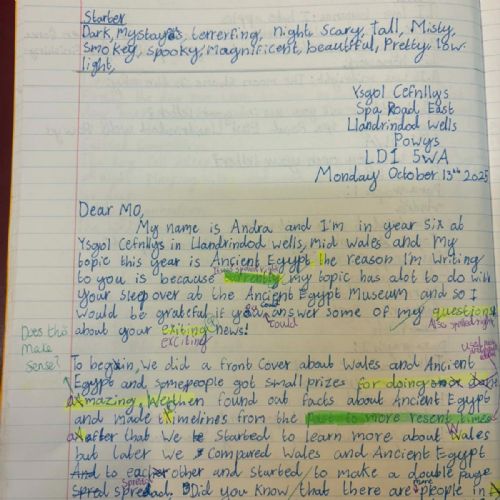 Starter
Dark, Mystays, terrerfing, night, Scary, Tall, Misty,
Smokey, spooky, magnificent, beautiful, Pretty, low
light,
Ysgol Cefnllys
Spa Road East
Llandrindod Wells
Powys
LD1 5WA
Monday October 13th 2025
Dear MO,
My name is Andra and I'm in year six at
Ysgol Cefnllys in Llandrindod wells, mid wales and My
topic this year is Ancient Egypt the reason I'm writing
to you is because my topic has alot to do with
your sleep over at the Ancient Egypt Museum and so I
would be grateful if you answer some of my questions
could
Also spelled right
about your exiting news!
exciting
Does this
Make
sense?
To begin, we did a front cover about Wales and Ancient
Egypt and some people got small prizes for doing
amazing, We then found out facts about Ancient Egypt
and made timelines from the Past to more resent times
after that we started to learn more about Wales
but later we compared Wales and Ancient Egypt
to each other and started to make a double page
spread. Did you know that there are people in
more